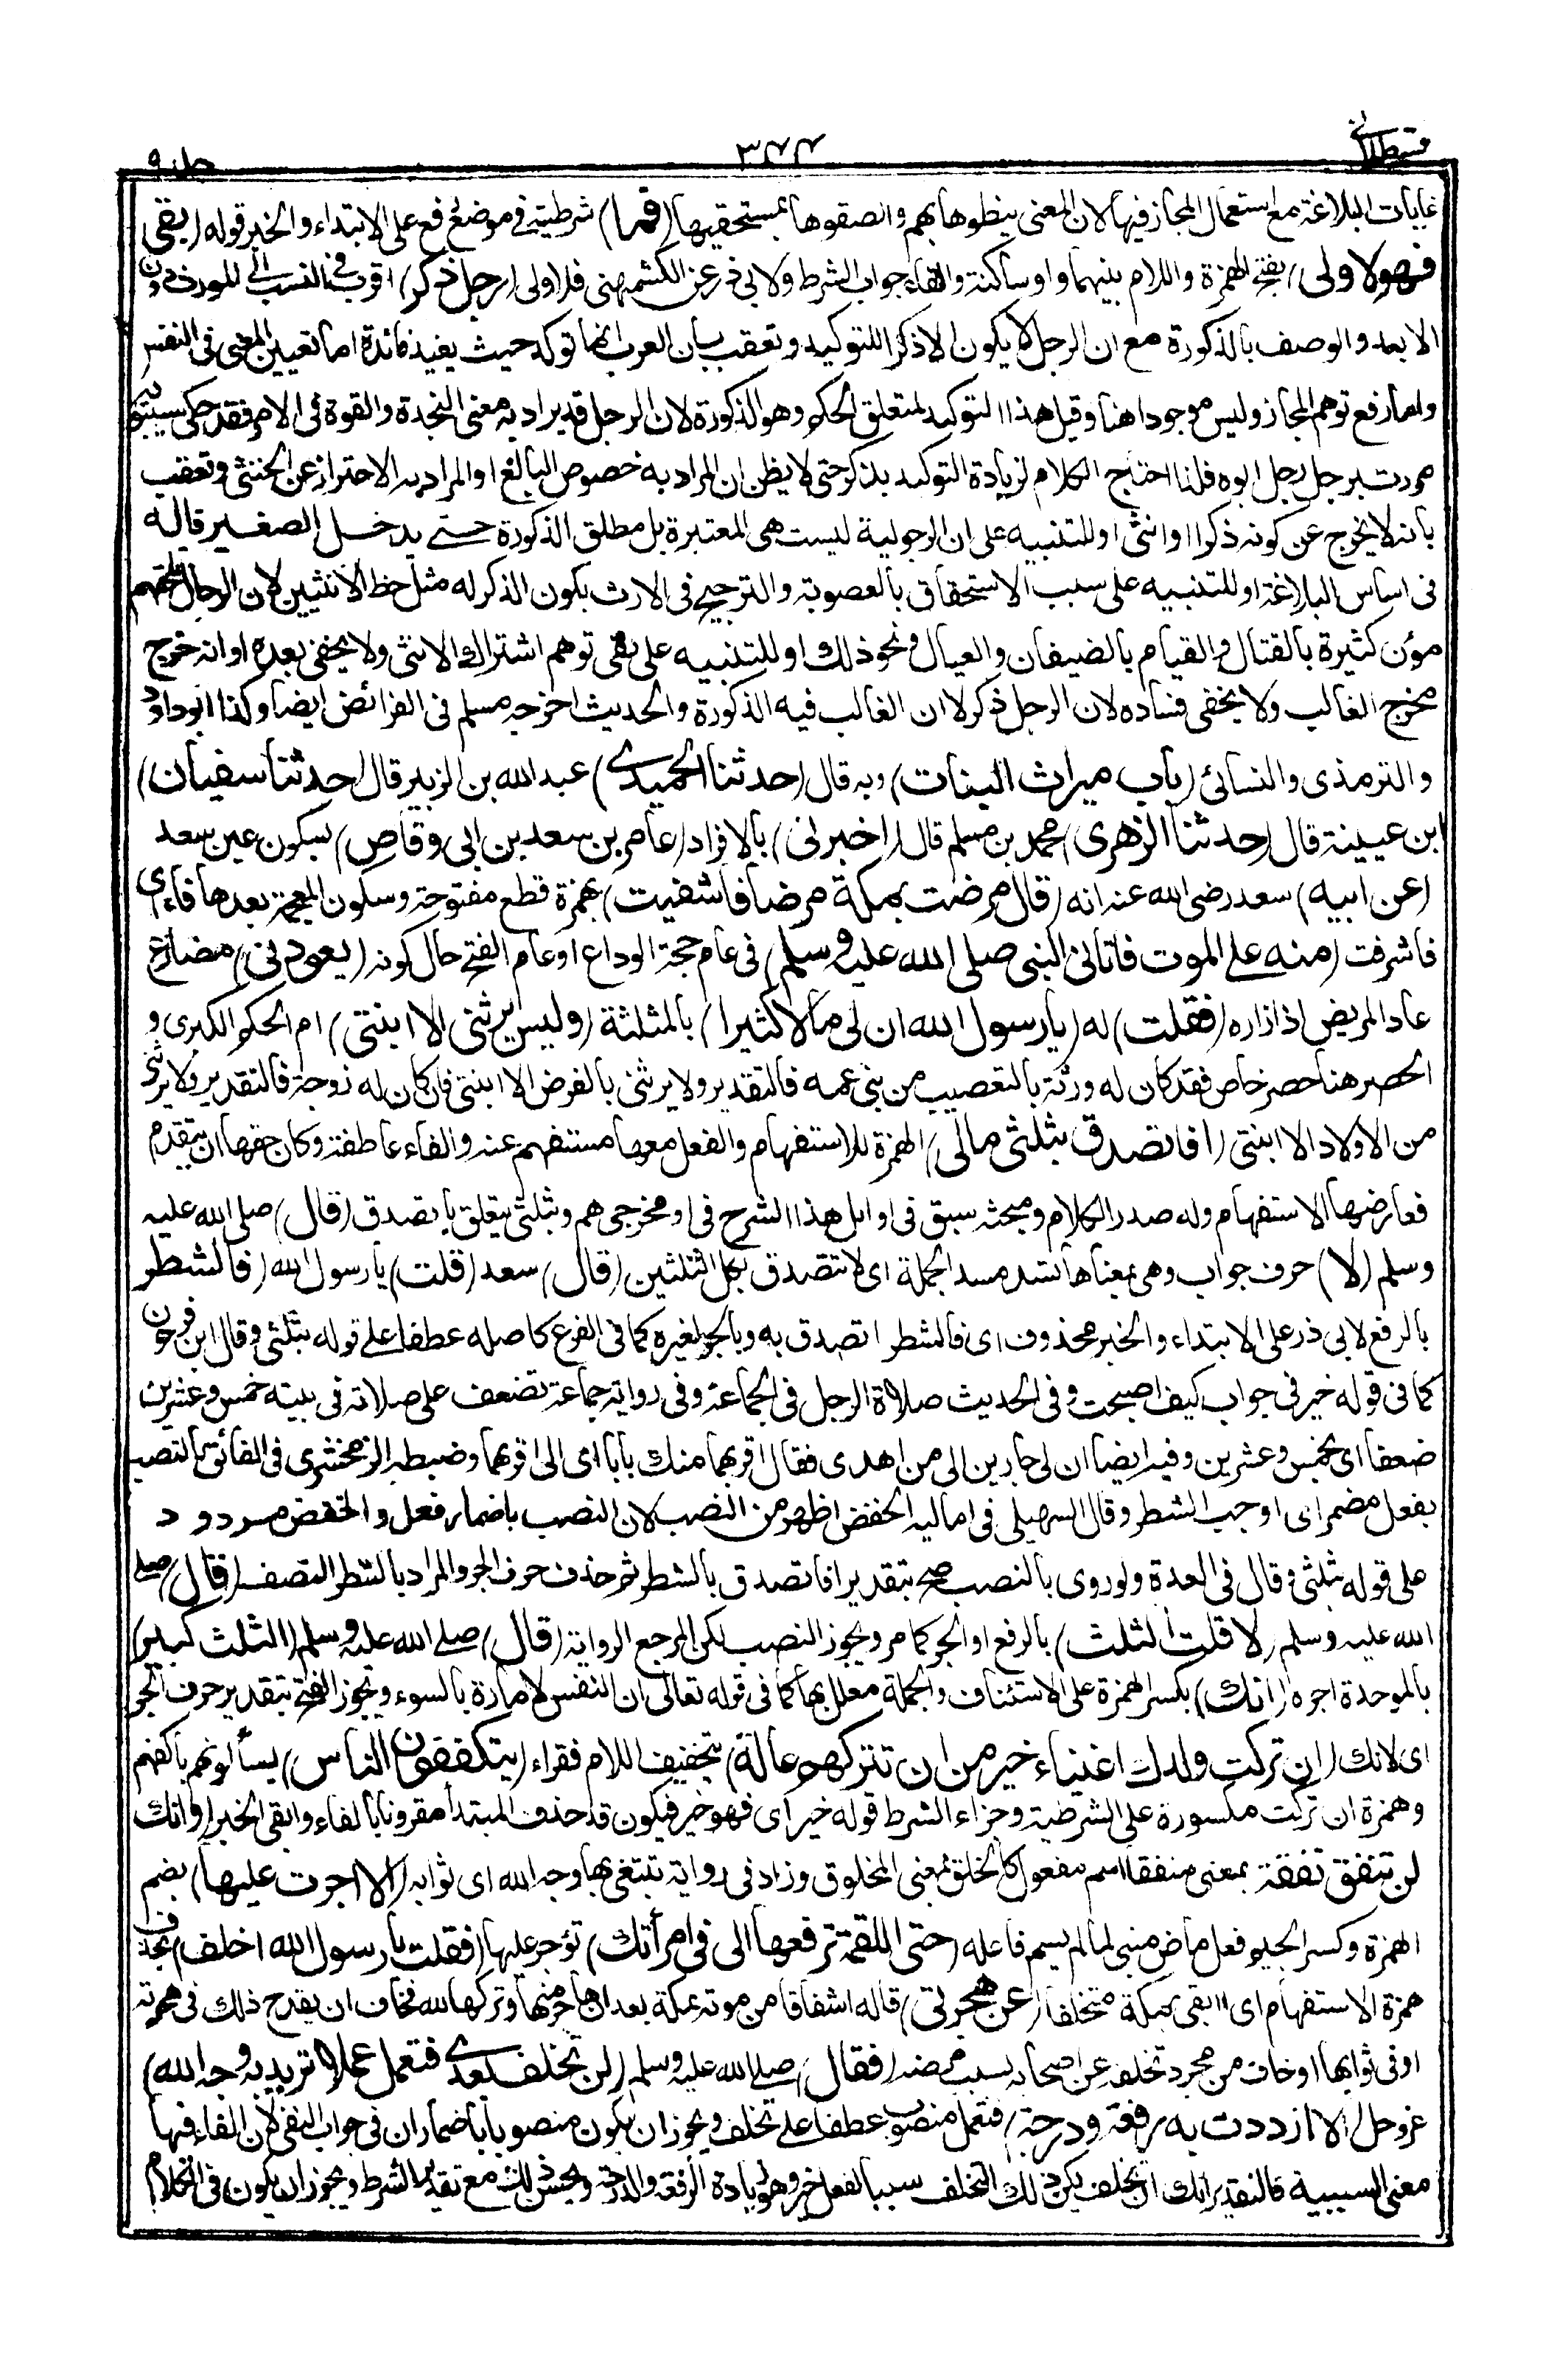 قسطلانی ٣٧٤ جلد ٩
غايات البلاغة مع استعمال المجاز فيها لان المعنى ينطوها بهم والصقوها بمستحقيها (فما) شرطية فى موضع رفع على الابتداء والخبر قوله (بقى
فهو لاولى) بفتح الهمزة واللام بينهما واو ساكنة والفاء جواب الشرط ولابى ذر عن الكشميهنى فلاولى (رجل ذكر) اقرب فى النسب الى المورث دون
الابعد والوصف بالذكورة مع ان الرجل لا يكون الا ذكرا للتوكيد وتعقب بان العرب انما توكد حيث يفيد فائدة اما تعيين المعنى فى النفس
واما رفع توهم المجاز وليس موجودا هنا وقيل هذا التوكيد لمتعلق الحكم وهو الذكورة لان الرجل قد يراد به معنى النجدة والقوة فى الامر فقد حكى سيبويه
مررت برجل رجل ابوه فلذا احتاج الكلام لزيادة التوكيد بذكر حتى لا يظن ان المراد به خصوص البالغ او المراد به الاحتراز عن الخنثى وتعقب
بانه لا يخرج عن كونه ذكرا او انثى او للتنبيه على ان الرجولية ليست هى المعتبرة بل مطلق الذكورة حتى يدخل الصغير قاله
فى اساس البلاغة او للتنبيه على سبب الاستحقاق بالعصوبة والترجيح فى الارث بكون الذكر له مثل حظ الانثيين لان الرجال تلحقهم
مؤن كثيرة بالقتال والقيام بالضيفان والعيال ونحو ذلك او للتنبيه على نفى توهم اشتراك الانثى ولا يخفى بعده او انه خرج
مخرج الغالب ولا يخفى فساده لان الرجل ذكر لا ان الغالب فيه الذكورة والحديث اخرجه مسلم فى الفرائض ايضا وكذا ابوداود
والترمذى والنسائى (باب ميراث البنات) وبه قال (حدثنا الحميدى) عبد الله بن الزبير قال (حدثنا سفيان)
ابن عيينة قال (حدثنا الزهرى) محمد بن مسلم قال (اخبرنى) بالافراد (عامر بن سعد بن ابى وقاص) بسكون عين سعد
(عن ابيه) سعد رضى الله عنه انه (قال مرضت بمكة مرضا فاشفيت) بهمزة قطع مفتوحة وسكون المعجمة بعدها فاء اى
فاشرفت (منه على الموت فاتانى النبى صلى الله عليه وسلم) فى عام حجة الوداع او عام الفتح حال كونه (يعودنى) مضارع
عاد المريض اذا زاره (فقلت) له (يا رسول الله ان لى مالا كثيرا) بالمثلثة (وليس يرثنى الا ابنتى) ام الحكم الكبرى و
الحصر هنا حصر خاص فقد كان له ورثة بالتعصيب من بنى عمه فالتقدير ولا يرثنى بالفرض الا ابنتى فان كان له زوجة فالتقدير ولا يرثنى
من الاولاد الا ابنتى (افاتصدق بثلثى مالى) الهمزة للاستفهام والفعل معها مستفهم عنه والفاء عاطفة وكان حقها ان يتقدم
فعارضها الاستفهام وله صدر الكلام ومبحثه سبق فى اوايل هذا الشرح فى او مخرجى هم وبثلثى يتعلق باتصدق (قال) صلى الله عليه
وسلم (لا) حرف جواب وهى بمعناها تسد مسد الجملة اى لا تتصدق بكل الثلثين (قال) سعد (قلت) يا رسول الله (فالشطر
بالرفع لابى ذر على الابتداء والخبر محذوف اى فالشطر اتصدق به وبالجر لغيره كما فى الفرع كاصله عطفا على قوله بثلثى وقال ابن فرحون
كما فى قوله خير فى جواب كيف اصبحت وفى الحديث صلاة الرجل فى الجماعة وفى رواية جماعة تضعف على صلاته فى بيته خمس وعشرين
ضعفا اى بخمس وعشرين وفيه ايضا ان لى جارين الى من اهدى فقال اقربهما منك بابا اى الى اقربهما وضبطه الزمخشرى فى الفائق بالنصب
بفعل مضمر اى اوجب الشطر وقال السهيلى فى اماليه الخفض اظهر من النصب لان النصب باضمار فعل والخفض مردود
على قوله بثلثى وقال فى العدة ولو روى بالنصب صح بتقدير افاتصدق بالشطر ثم حذف حرف الجر والمراد بالشطر النصف (قال) صلى
الله عليه وسلم (لا قلت الثلث) بالرفع او الجر كما مر ويجوز النصب لكن المرجع الرواية (قال) صلى الله عليه وسلم (الثلث كبير)
بالموحدة اجره (انك) بكسر الهمزة على الاستئناف والجملة معلل بها كما فى قوله تعالى ان النفس لامارة بالسوء ويجوز الفتح بتقدير حرف الجر
اى لانك (ان تركت ولدك اغنياء خير من ان تتركهم عالة) بتخفيف اللام فقراء (يتكففون الناس) يسألونهم باكفهم
وهمزة ان تركت مكسورة على الشرطية وجزاء الشرط قوله خير اى فهو خير فيكون قد حذف المبتدأ مقرونا بالفاء وابقى الخبر (وانك
لن تنفق نفقة بمعنى منفقا اسم مفعول كالخلق بمعنى المخلوق وزاد فى رواية تبتغى بها وجه الله اى ثوابه (الا اجرت عليها) بضم
الهمزة وكسر الجيم فعل ماض مبنى لما لم يسم فاعله (حتى اللقمة ترفعها الى فى امرأتك) تؤجر عليها (فقلت يا رسول الله اخلف) بحذف
همزة الاستفهام اى اابقى بمكة متخلفا (عن هجرتى) قاله اشفاقا من موته بمكة بعد ان هاجر منها وتركها لله فخاف ان يقدح ذلك فى هجرته
او فى ثوابها او خاف من مجرد تخلفه عن اصحابه بسبب مرضه (فقال) صلى الله عليه وسلم (لن تخلف بعدى فتعمل عملا تريد به وجه الله)
عزوجل (الا ازددت به رفعة ودرجة) فتعمل منصوب عطفا على تخلف ويجوز ان يكون منصوبا باضمار ان فى جواب النفى لان الفاء فيها
معنى السببية فالتقدير انك ان تخلف يكن ذلك التخلف سببا لفعل خير وهو زيادة الرفعة والدرجة ويحسن ذلك مع تقدير الشرط ويجوز ان يكون فى الكلام